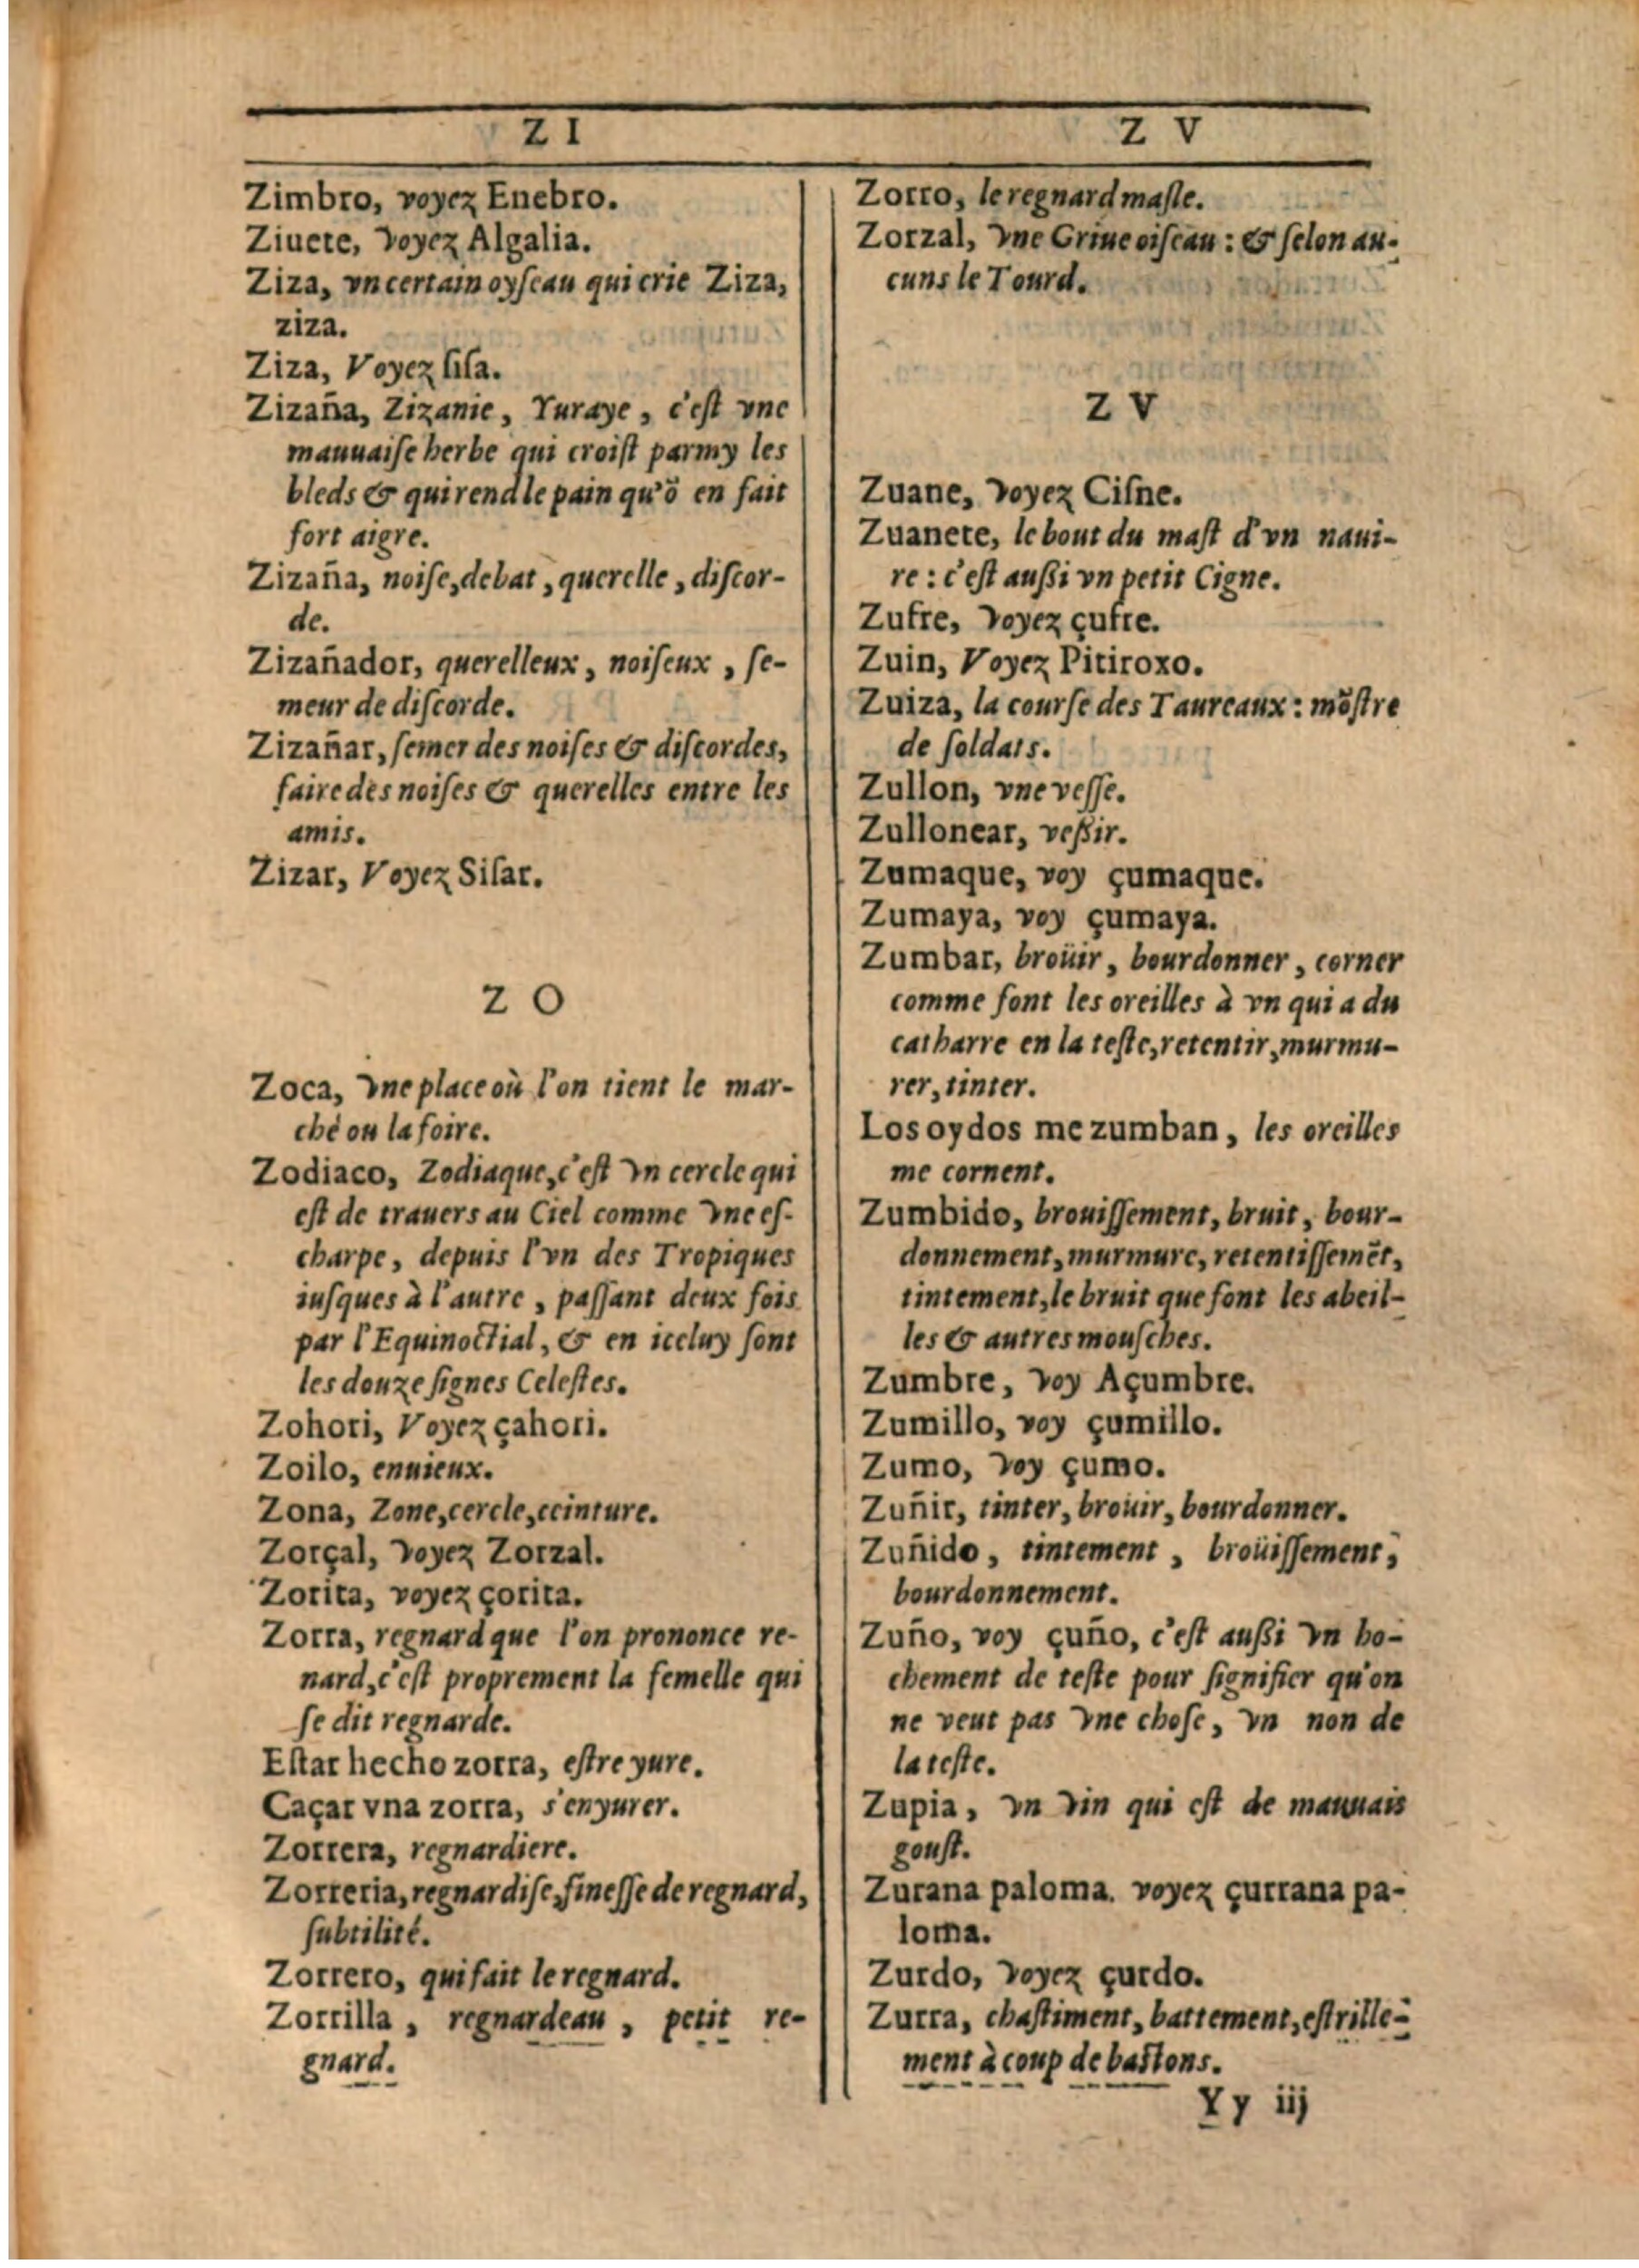 Z I
Zimbro, voyez Enebro.
Ziuete, voyez Algalia.
Ziza, vn certain oyſeau qui crie Ziza,
ziza.
Ziza, Voyez ſiſa.
Zizaña, Zizanie, Yuraye, c'eſt vne
mauuaiſe herbe qui croiſt parmy les
bleds & qui rend le pain qu'õ en fait
fort aigre.
Zizaña, noiſe, debat, querelle, diſcor-
de.
Zizañador, querelleux, noiſeux, ſe-
meur de diſcorde.
Zizañar, ſemer des noiſes & diſcordes,
faire des noiſes & querelles entre les
amis.
Zizar, Voyez Siſar.
Z O
Zoca, vne place où l'on tient le mar-
ché ou la foire.
Zodiaco, Zodiaque, c'eſt vn cercle qui
eſt de trauers au Ciel comme vne eſ-
charpe, depuis l'vn des Tropiques
iuſques à l'autre, paſſant deux fois
par l'Equinoctial, & en iceluy ſont
les douze ſignes Celeſtes.
Zohori, Voyez çahori.
Zoilo, enuieux.
Zona, Zone, cercle, ceinture.
Zorçal, voyez Zorzal.
Zorita, voyez çorita.
Zorra, regnard que l'on prononce re-
nard, c'eſt proprement la femelle qui
ſe dit regnarde.
Eſtar hecho zorra, eſtre yure.
Caçar vna zorra, s'enyurer.
Zorrera, regnardiere.
Zorreria, regnardiſe, fineſſe de regnard,
ſubtilité.
Zorrero, qui fait le regnard.
Zorrilla, regnardeau, petit re-
gnard.
Z V
Zorro, le regnard maſle.
Zorzal, vne Griue oiſeau: & ſelon au-
cuns le Tourd.
Z V
Zuane, voyez Ciſne.
Zuanete, le bout du maſt d'vn naui-
re: c'eſt auſſi vn petit Cigne.
Zufre, voyez çufre.
Zuin, Voyez Pitiroxo.
Zuiza, la courſe des Taureaux: mõſtre
de ſoldats.
Zullon, vne veſſe.
Zullonear, veſſir.
Zumaque, voy çumaque.
Zumaya, voy çumaya.
Zumbar, broüir, bourdonner, corner
comme font les oreilles à vn qui a du
catharre en la teſte, retentir, murmu-
rer, tinter.
Los oydos me zumban, les oreilles
me cornent.
Zumbido, brouiſſement, bruit, bour-
donnement, murmure, retentiſſemẽt,
tintement, le bruit que font les abeil-
les & autres mouſches.
Zumbre, voy Açumbre.
Zumillo, voy çumillo.
Zumo, voy çumo.
Zuñir, tinter, broüir, bourdonner.
Zuñido, tintement, broüiſſement,
bourdonnement.
Zuño, voy çuño, c'eſt auſſi vn ho-
chement de teſte pour ſignifier qu'on
ne veut pas vne choſe, vn non de
la teſte.
Zupia, vn vin qui eſt de mauuais
gouſt.
Zurana paloma. voyez çurrana pa-
loma.
Zurdo, voyez çurdo.
Zurra, chaſtiment, battement, eſtrille-
ment à coup de baſtons.
Y y iij